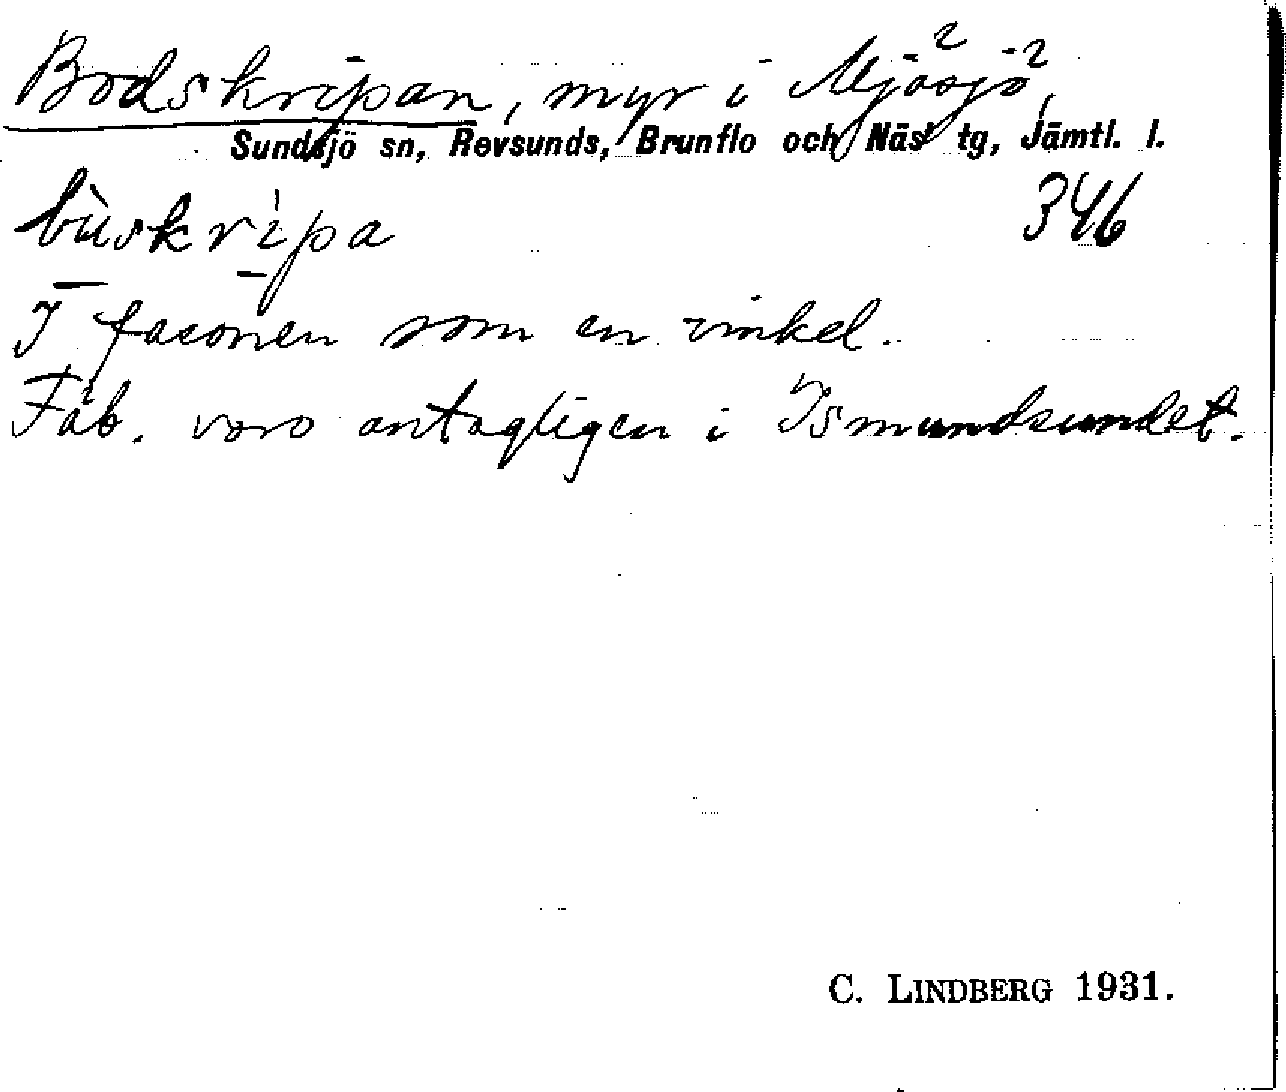 Bodskripan, myr i Mjösjö,
Sundsjö sn, Revsunds, Brunflo och Näs tg, Jämtl. l.
bùskripa 346
I faconen som en vinkel.
Fäb. voro antagligen i Ismundsundet.
C. LINDBERG 1931.